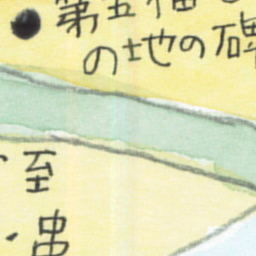 第五福
の地の碑
至
串